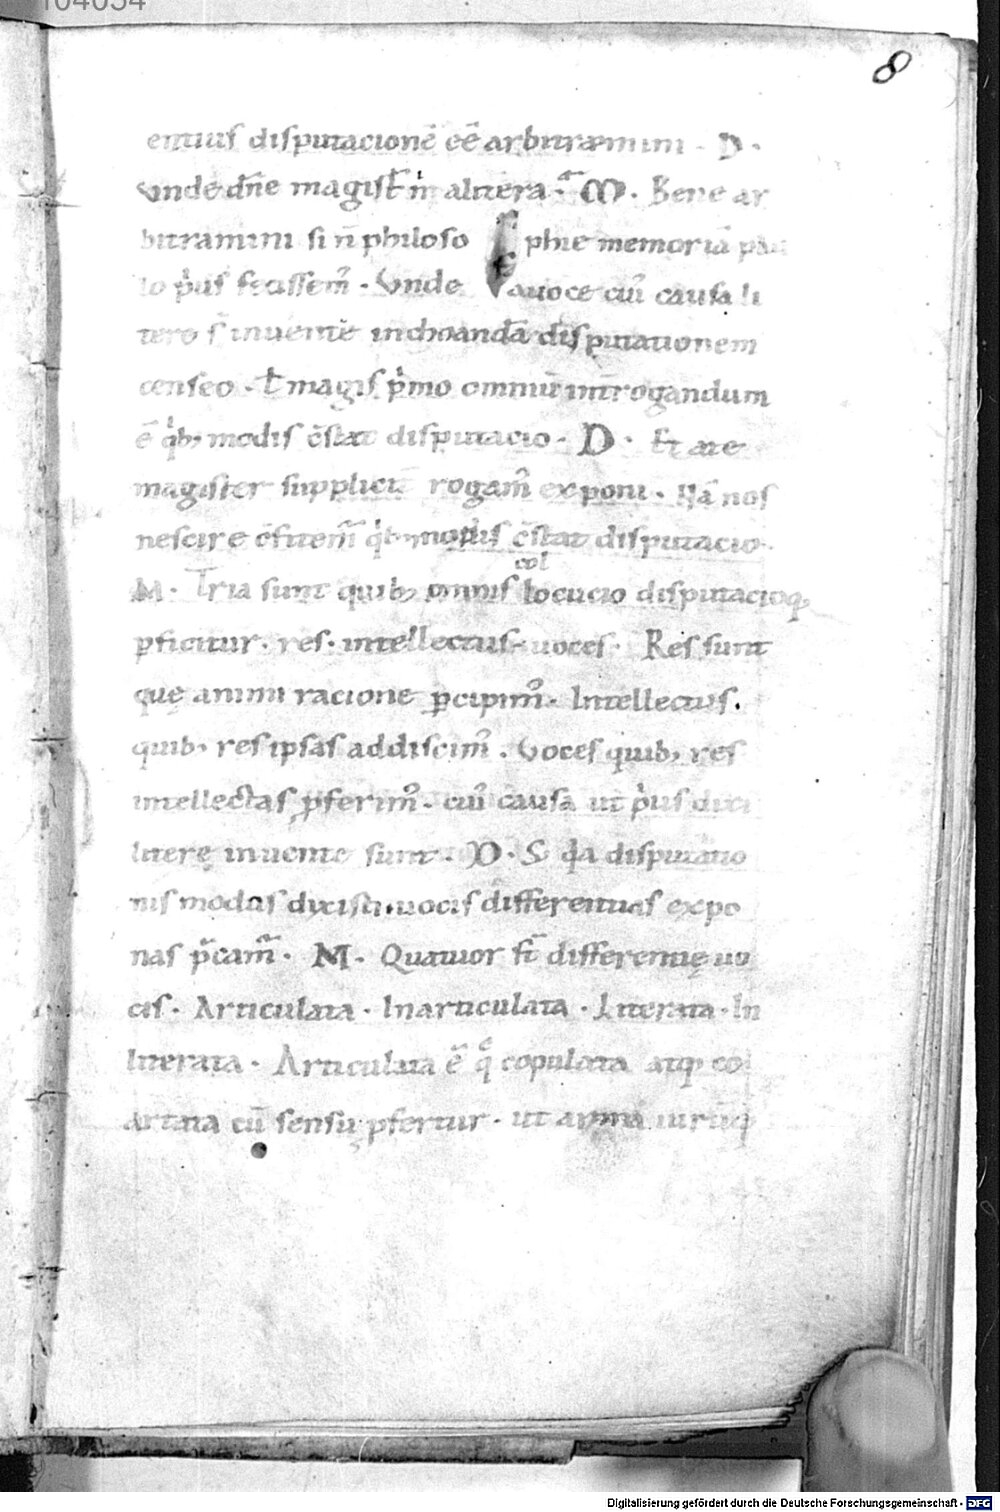 104054
8
entius disputacionē eē arbitramini · D ·
Vnde dn̄e magist̄ n̄ altera · M · Bene ar
bitramini si n̄ philoso phie memoriā
lo p̍us fecissem᷒ · Vnde a uoce cui᷒ causa li
terę s̄ inuentę inchoandā disputationem
censeo · t̄ magis p̍mo omniū int̄rogandum
ē q̍b; modis c̄stat disputacio · D · Et a te
magister supplicit̄ rogam᷒ exponi · Nā nos
nescire c̄fitem̄ q̍b; modis c̄stat disputacio ·
col
M · Tria sunt quib; omnis locucio disputacioq;
ꝑficitur · res · intellectus · uoces · Res sunt
quę animi racione ꝑcipim᷒ · Intellectus ·
quib; res ipsas addiscim᷒ · Voces quib; res
intellectas ꝓferim᷒ · cui᷒ causa ut p̍us dixi
literę inuente sunt · D · S; q̍a disputatio
nis modos dixisti · uocis differentias expo
nas p̄cam᷒ · M · Quatuor st̄ differentię uo
cis · Articulata · Inarticulata · Literata · In
literata · Articulata ē q̄ copulata atq; co
artata cū sensu ꝓfertur · ut arma uirūq;
Digitalisierung gefördert durch die Deutsche Forschungsgemeinschaft - DFG